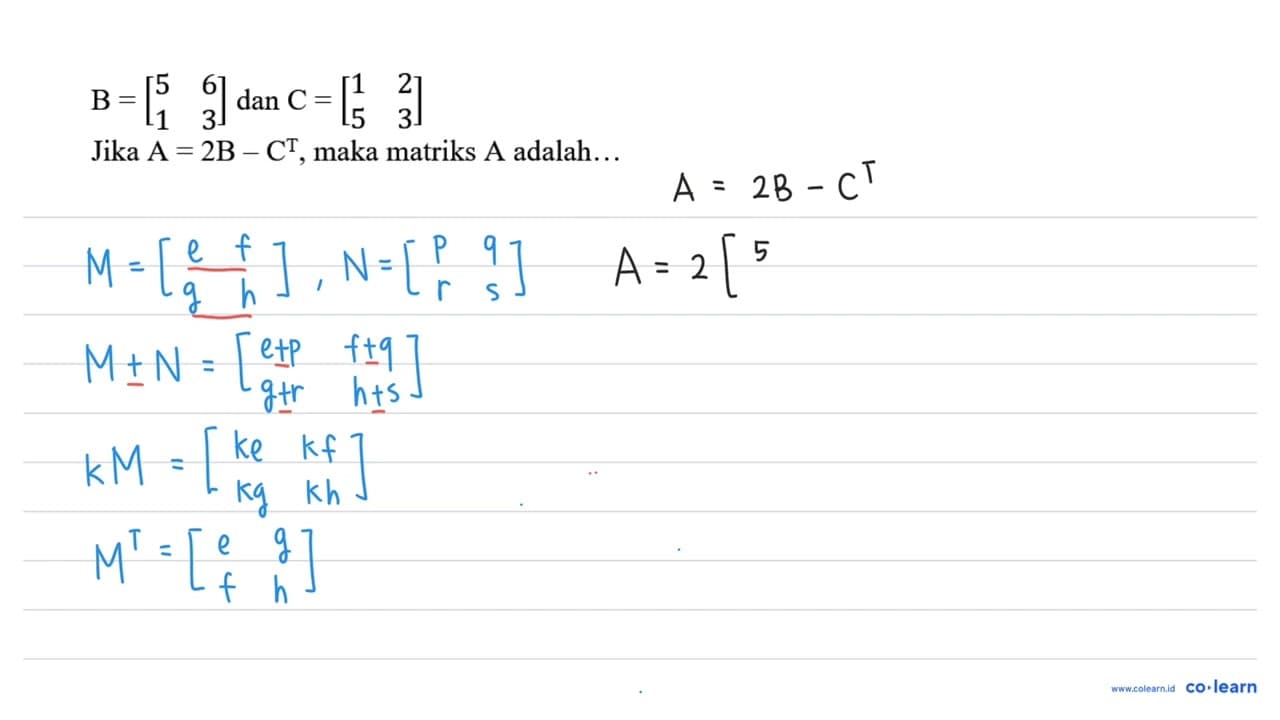 B = [5 6
1 3] dan C = [1 2
5 3]
Jika A = 2B – Cᵀ, maka matriks A adalah…
A = 2B - Cᵀ
M = [e f
g h] , N = [p q
r s]
A = 2 [5
M ± N = [e±p f±q
g±r h±s]
kM = [ke kf
kg kh]
Mᵀ = [e g
f h]
www.colearn.id co·learn